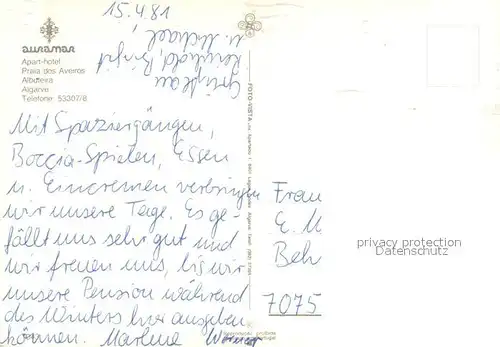 15.4.81
auramar
Apart-hotel
Praia dos Aveiros
Albufeira
Algarve
Telefone: 53307/8
Mit Spaziergängen,
Boccia-Spielen, Essen
u. Eincremen verbringen
wir unsere Tage. Es ge-
fällt uns sehr gut und
wir freuen uns, bis wir
unsere Pension während
des Winters hier ausgeben
können. Marlene Werner
Reinhold, Birgit
u. Michael
FOTO-VISTA
Frau
E. M
Beh
7075
privacy protection
Datenschutz